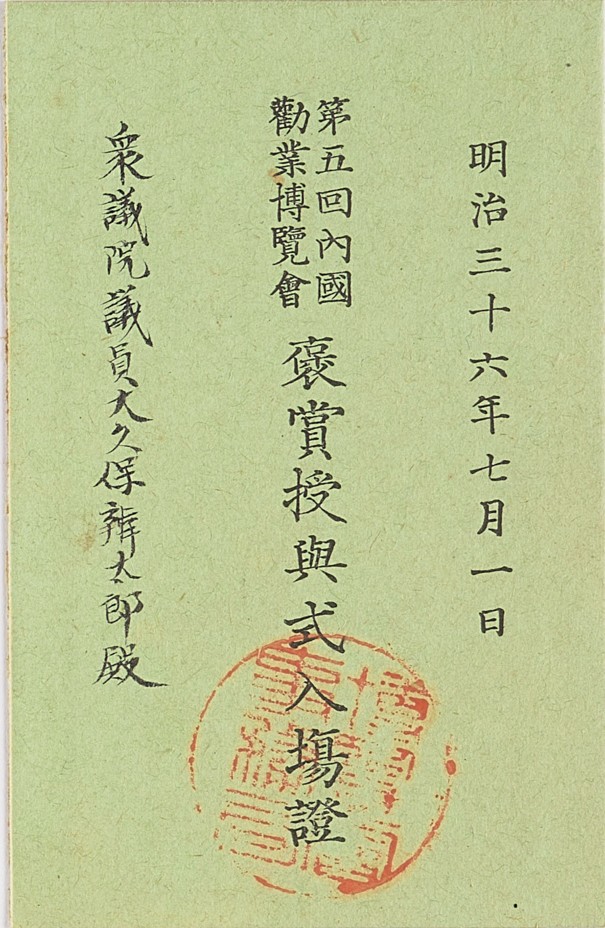 明治三十六年七月一日
第五回內國
勸業博覽會
褒賞授與式入塲證
衆議院議員大久保辨太郎殿